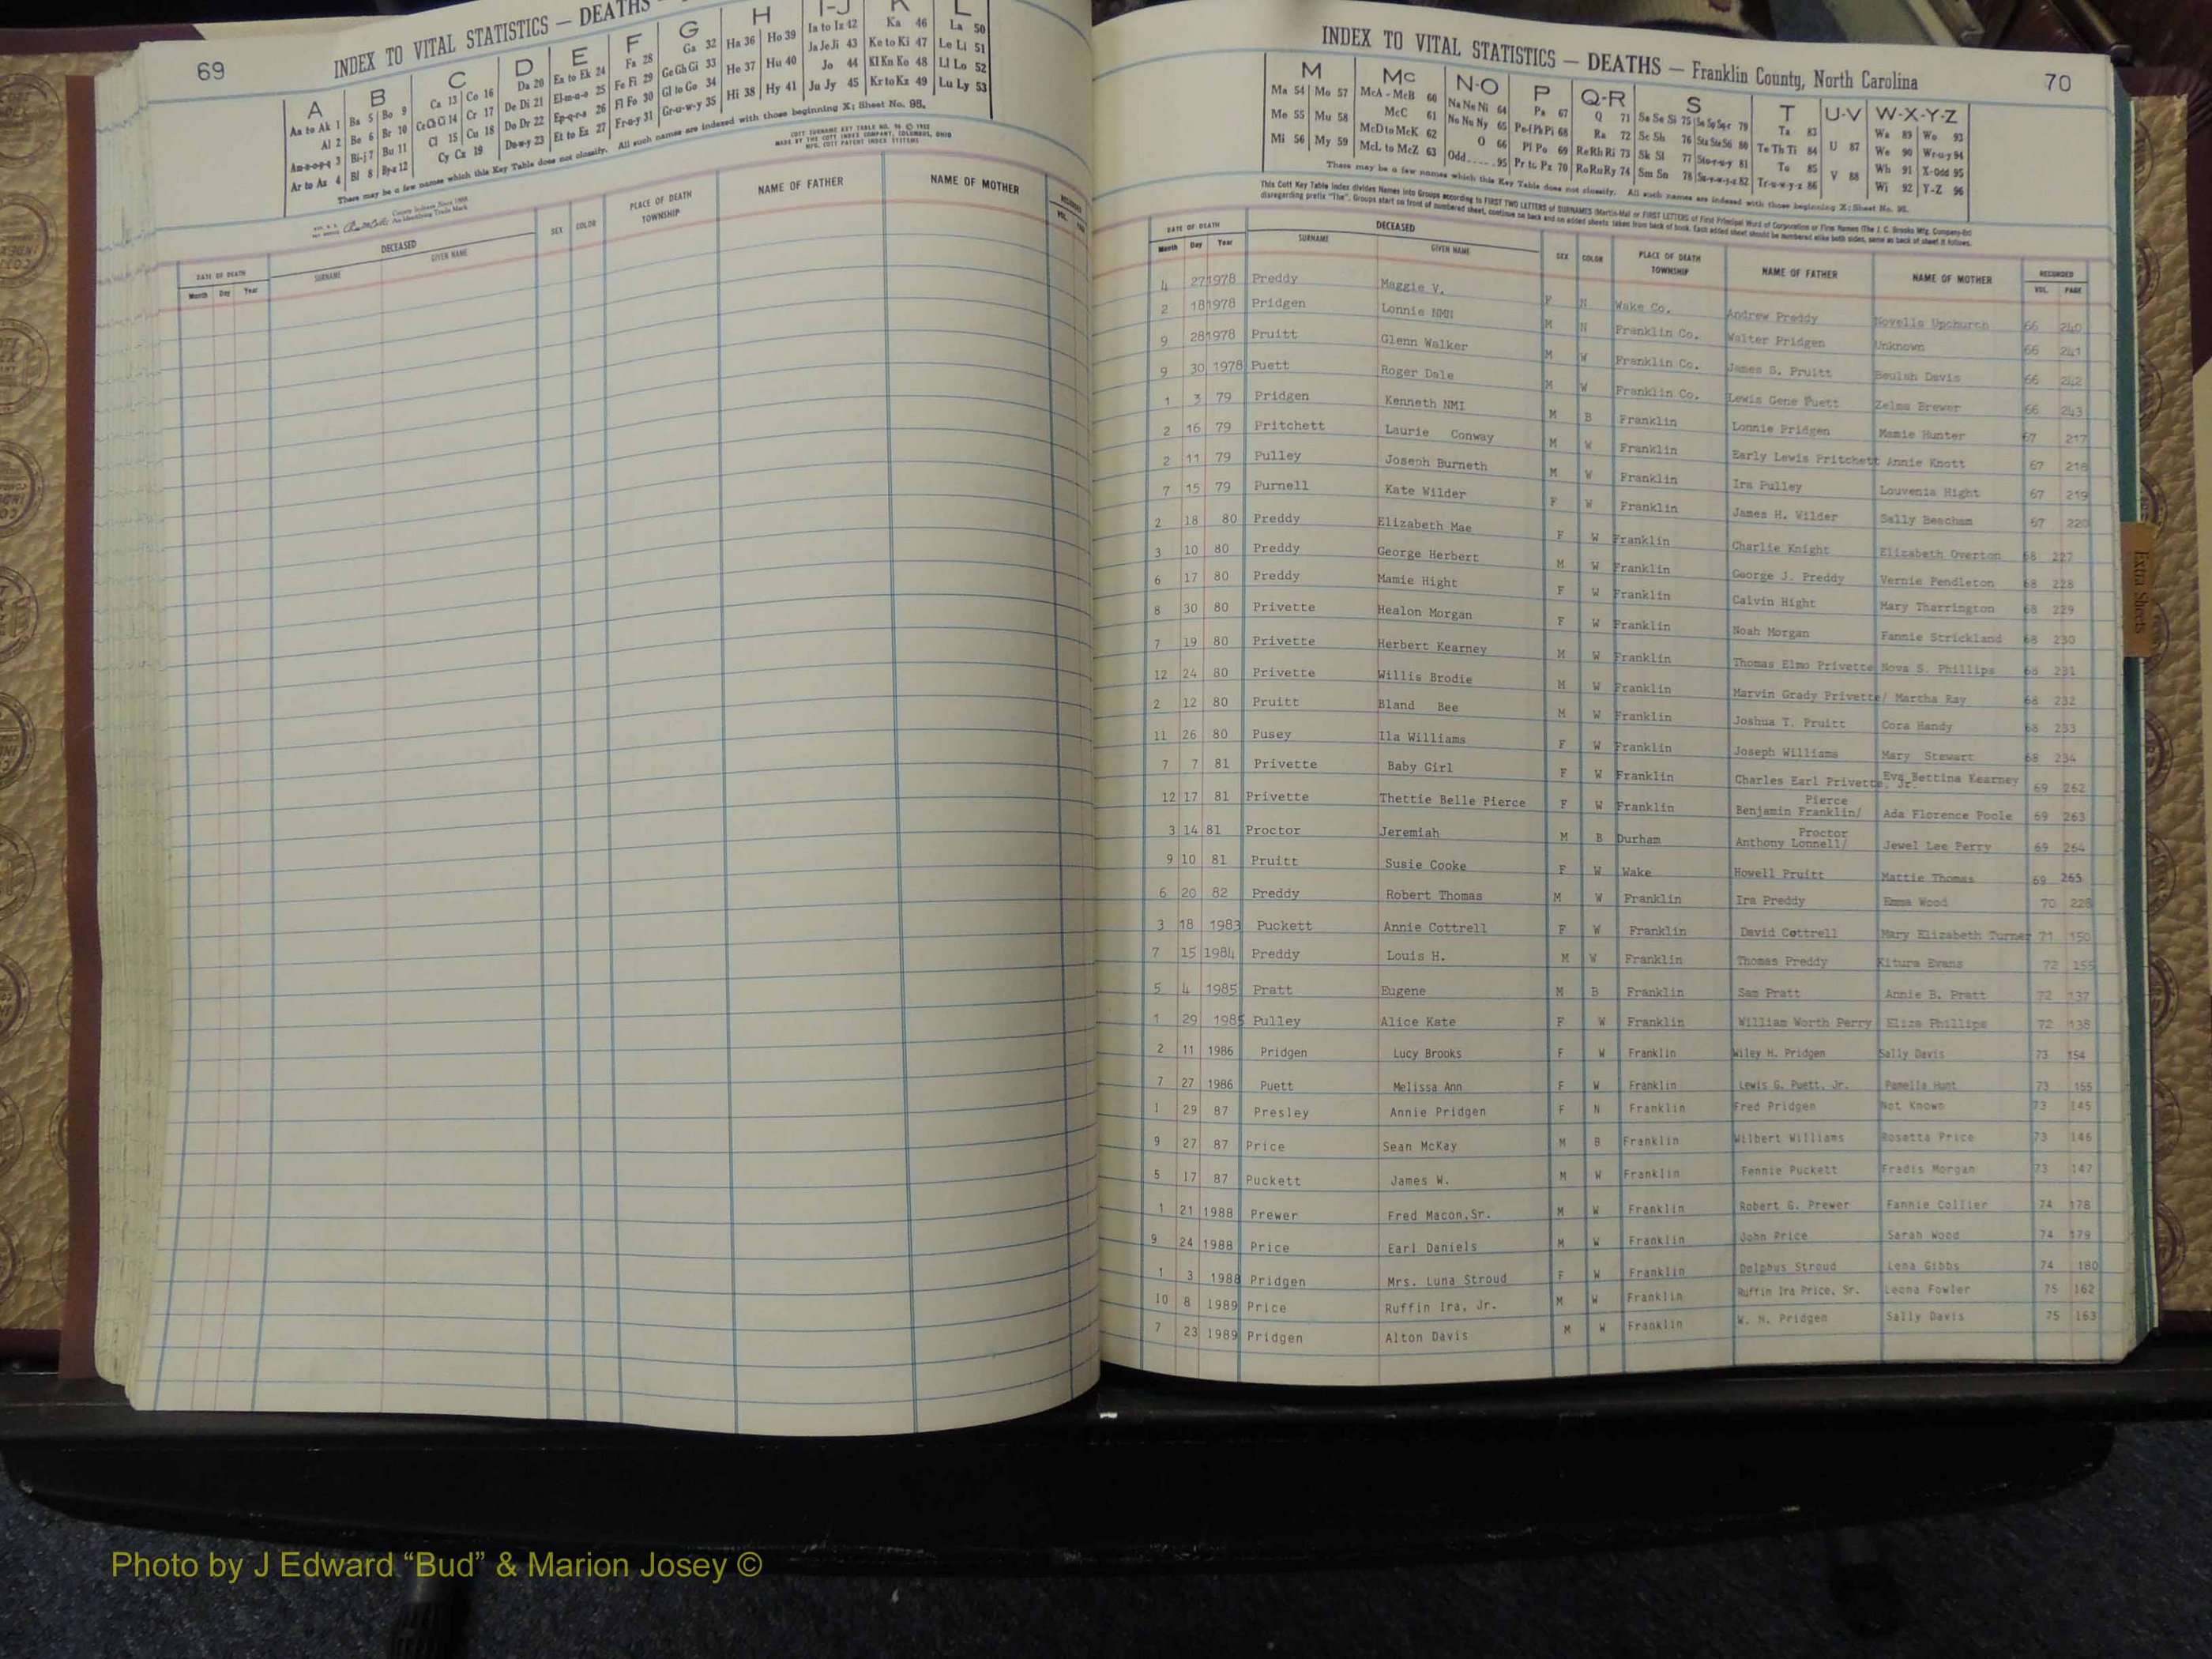 69
INDEX TO VITAL STATISTICS — DEATHS —
A B C D E F G H I-J K L
Aa to Ak 1 Ba 5 Bo 9 Ca 13 Co 16 Da 20 Ea to Ek 24 Fa 28 Ga 32 Ha 36 Ho 39 Ia to Iz 42 Ka 46 La 50
Al 2 Be 6 Br 10 Ce Ch Ci 14 Cr 17 De Di 21 El-m-n-o 25 Fe Fi 29 Ge Gh Gi 33 He 37 Hu 40 Ja Je Ji 43 Ke to Ki 47 Le Li 51
Am-n-o-p-q 3 Bi-j 7 Bu 11 Cl 15 Cu 18 Do Dr 22 Ep-q-r-s 26 Fl Fo 30 Gl to Go 34 Hi 38 Hy 41 Jo 44 Kl Kn Ko 48 Ll Lo 52
Ar to Az 4 Bl 8 By-z 12 Cy Cz 19 Du-w-y 23 Et to Ez 27 Fr-u-y 31 Gr-u-w-y 35 Ju Jy 45 Kr to Kz 49 Lu Ly 53
There may be a few names which this Key Table does not classify. All such names are indexed with those beginning X; Sheet No. 95.
COTT SURNAME KEY TABLE NO. 96 © 1952
MADE BY THE COTT INDEX COMPANY, COLUMBUS, OHIO
MFG. COTT PATENT INDEX SYSTEMS
County Indexes Since 1888
An Identifying Trade Mark
DATE OF DEATH DECEASED SEX COLOR PLACE OF DEATH TOWNSHIP NAME OF FATHER NAME OF MOTHER RECORDED
Month Day Year SURNAME GIVEN NAME VOL. PAGE
INDEX TO VITAL STATISTICS — DEATHS — Franklin County, North Carolina 70
M Mc N-O P Q-R S T U-V W-X-Y-Z
Ma 54 Mo 57 McA - McB 60 Na Ne Ni 64 Pa 67 Q 71 Sa Se Si 75 Sn Sp Sq-r 79 Ta 83 U 87 Wa 89 Wo 93
Me 55 Mu 58 McC 61 No Nu Ny 65 Pe-f Ph Pi 68 Ra 72 Sc Sh 76 Sta Ste Sti 80 Te Th Ti 84 V 88 We 90 Wr-u-y 94
Mi 56 My 59 McD to McK 62 O 66 Pl Po 69 Re Rh Ri 73 Sk Sl 77 Sto-r-u-y 81 To 85 Wh 91 X-Odd 95
McL to McZ 63 Odd.....95 Pr to Pz 70 Ro Ru Ry 74 Sm Sn 78 Su-v-w-y-z 82 Tr-u-w-y-z 86 Wi 92 Y-Z 96
There may be a few names which this Key Table does not classify. All such names are indexed with those beginning X; Sheet No. 95.
This Cott Key Table Index divides Names into Groups according to FIRST TWO LETTERS of SURNAMES (Martin-Ma) or FIRST LETTERS of First Principal Word of Corporation or Firm Names (The J. C. Brooks Mfg. Company-Br)
disregarding prefix "The". Groups start on front of numbered sheet, continue on back and on added sheets taken from back of book. Each added sheet should be numbered alike both sides, same as back of sheet it follows.
DATE OF DEATH DECEASED SEX COLOR PLACE OF DEATH TOWNSHIP NAME OF FATHER NAME OF MOTHER RECORDED
Month Day Year SURNAME GIVEN NAME VOL. PAGE
4 27 1978 Preddy Maggie V. F N Wake Co. Andrew Preddy Novella Upchurch 66 240
2 18 1978 Pridgen Lonnie NMN M N Franklin Co. Walter Pridgen Unknown 66 241
9 28 1978 Pruitt Glenn Walker M W Franklin Co. James S. Pruitt Beulah Davis 66 242
9 30 1978 Puett Roger Dale M W Franklin Co. Lewis Gene Puett Zelma Brewer 66 243
1 3 79 Pridgen Kenneth NMI M B Franklin Lonnie Pridgen Mamie Hunter 67 217
2 16 79 Pritchett Laurie Conway M W Franklin Early Lewis Pritchett Annie Knott 67 218
2 11 79 Pulley Joseph Burneth M W Franklin Ira Pulley Louvenia Hight 67 219
7 15 79 Purnell Kate Wilder F W Franklin James H. Wilder Sally Beacham 67 220
2 18 80 Preddy Elizabeth Mae F W Franklin Charlie Knight Elizabeth Overton 68 227
3 10 80 Preddy George Herbert M W Franklin George J. Preddy Vernie Pendleton 68 228
6 17 80 Preddy Mamie Hight F W Franklin Calvin Hight Mary Tharrington 68 229
8 30 80 Privette Healon Morgan F W Franklin Noah Morgan Fannie Strickland 68 230
7 19 80 Privette Herbert Kearney M W Franklin Thomas Elmo Privette Nova S. Phillips 68 231
12 24 80 Privette Willis Brodie M W Franklin Marvin Grady Privette/ Martha Ray 68 232
2 12 80 Pruitt Bland Bee M W Franklin Joshua T. Pruitt Cora Handy 68 233
11 26 80 Pusey Ila Williams F W Franklin Joseph Williams Mary Stewart 68 234
7 7 81 Privette Baby Girl F W Franklin Charles Earl Privette, Jr. Eva Bettina Kearney 69 262
12 17 81 Privette Thettie Belle Pierce F W Franklin Benjamin Franklin/ Pierce Ada Florence Poole 69 263
3 14 81 Proctor Jeremiah M B Durham Anthony Lonnell/ Proctor Jewel Lee Perry 69 264
9 10 81 Pruitt Susie Cooke F W Wake Howell Pruitt Mattie Thomas 69 265
6 20 82 Preddy Robert Thomas M W Franklin Ira Preddy Emma Wood 70 228
3 18 1983 Puckett Annie Cottrell F W Franklin David Cottrell Mary Elizabeth Turner 71 150
7 15 1984 Preddy Louis H. M W Franklin Thomas Preddy Kitura Evans 72 155
5 4 1985 Pratt Eugene M B Franklin Sam Pratt Annie B. Pratt 72 137
1 29 1985 Pulley Alice Kate F W Franklin William Worth Perry Eliza Phillips 72 138
2 11 1986 Pridgen Lucy Brooks F W Franklin Wiley H. Pridgen Sally Davis 73 154
7 27 1986 Puett Melissa Ann F W Franklin Lewis G. Puett, Jr. Pamella Hunt 73 155
1 29 87 Presley Annie Pridgen F N Franklin Fred Pridgen Not Known 73 145
9 27 87 Price Sean McKay M B Franklin Wilbert Williams Rosetta Price 73 146
5 17 87 Puckett James W. M W Franklin Fennie Puckett Fradis Morgan 73 147
1 21 1988 Prewer Fred Macon,Sr. M W Franklin Robert G. Prewer Fannie Collier 74 178
9 24 1988 Price Earl Daniels M W Franklin John Price Sarah Wood 74 179
1 3 1988 Pridgen Mrs. Luna Stroud F W Franklin Dolphus Stroud Lena Gibbs 74 180
10 8 1989 Price Ruffin Ira, Jr. M W Franklin Ruffin Ira Price, Sr. Leona Fowler 75 162
7 23 1989 Pridgen Alton Davis M W Franklin W. H. Pridgen Sally Davis 75 163
Extra Sheets
Photo by J Edward “Bud” & Marion Josey ©